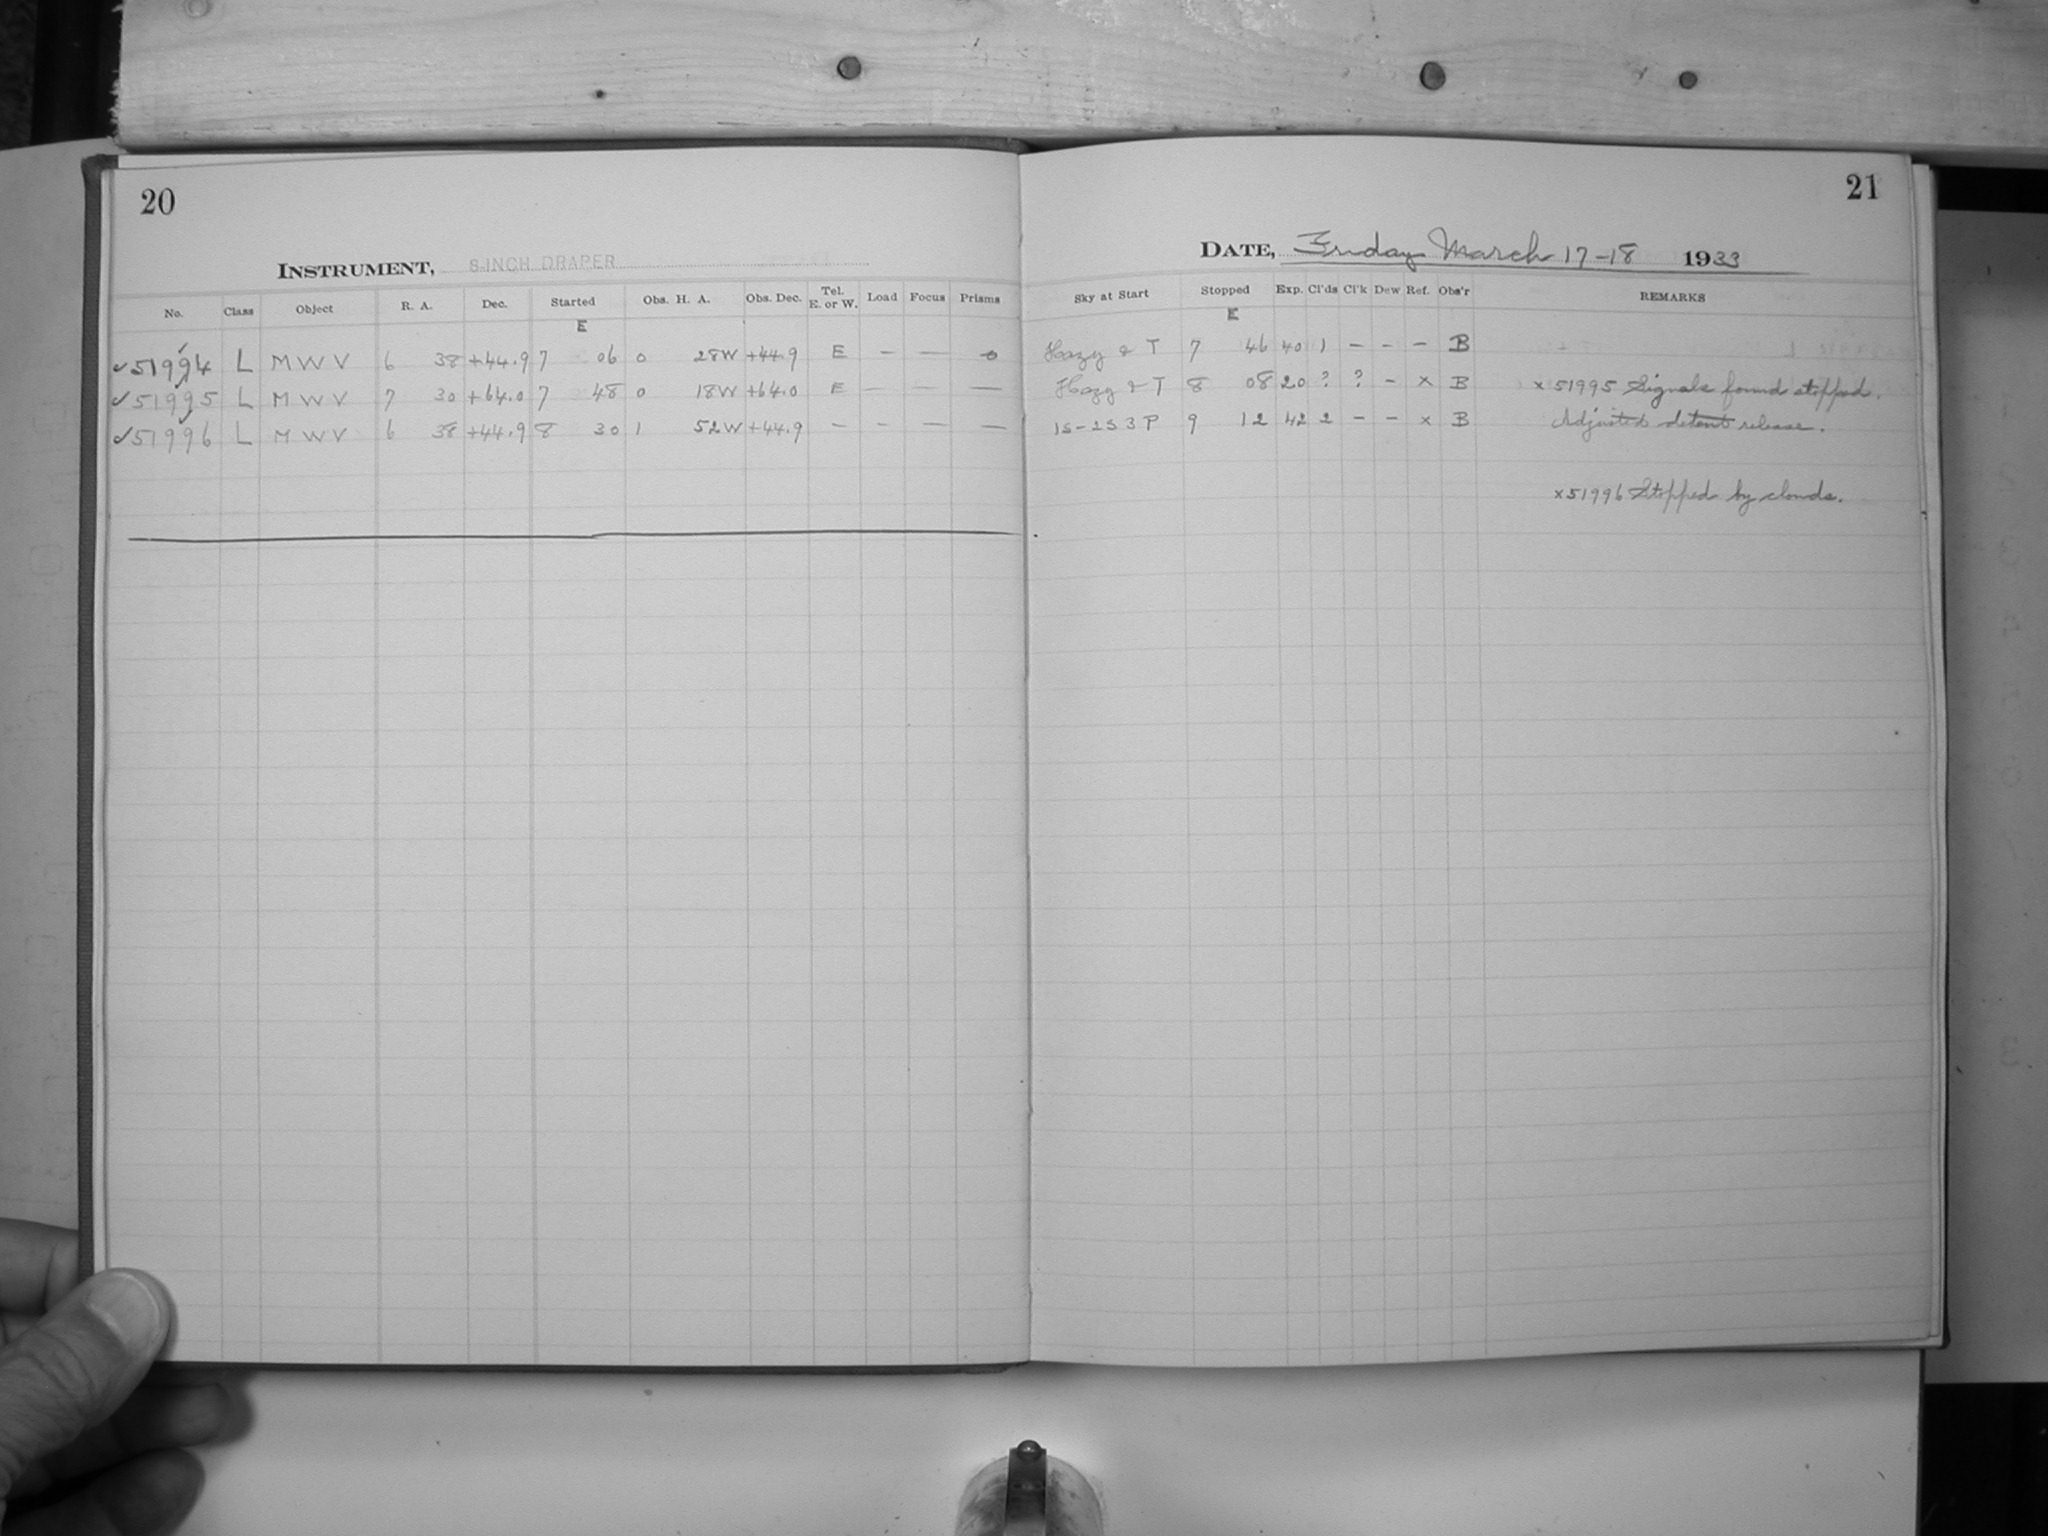 20
INSTRUMENT, 8-INCH DRAPER
No. Class Object R. A. Dec. Started Obs. H. A. Obs. Dec. Tel. E. or W. Load Focus Prisms
E
✓51994 L M W V 6 38 +44.9 7 06 0 28W +44.9 E – — –
✓51995 L M W V 7 30 +64.0 7 48 0 18W +64.0 E — — —
✓51996 L M W V 6 38 +44.9 8 30 1 52W +44.9 – – — —
21
DATE, Friday March 17–18 1933
Sky at Start Stopped Exp. Cl'ds Cl'k Dew Ref. Obs'r REMARKS
E
Hazy & T 7 46 40 1 – – – B
Hazy & T 8 08 20 ? ? – x B x 51995 Signals found stopped.
1S-2S3P 9 12 42 2 – – x B Adjusted detent release.
x 51996 Stopped by clouds.